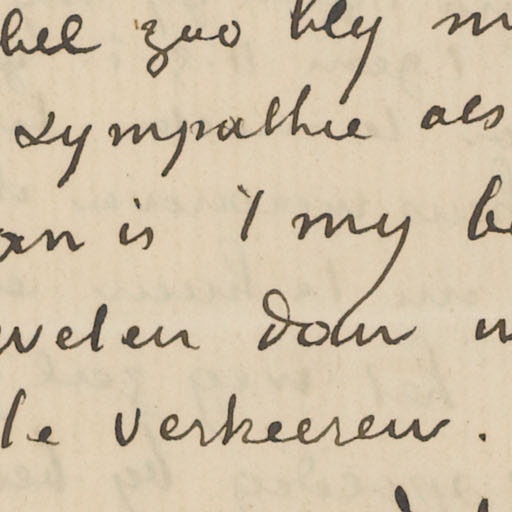 hel zoo bly m
sympathie als
an is 't my be
velen dan
te verkeeren.